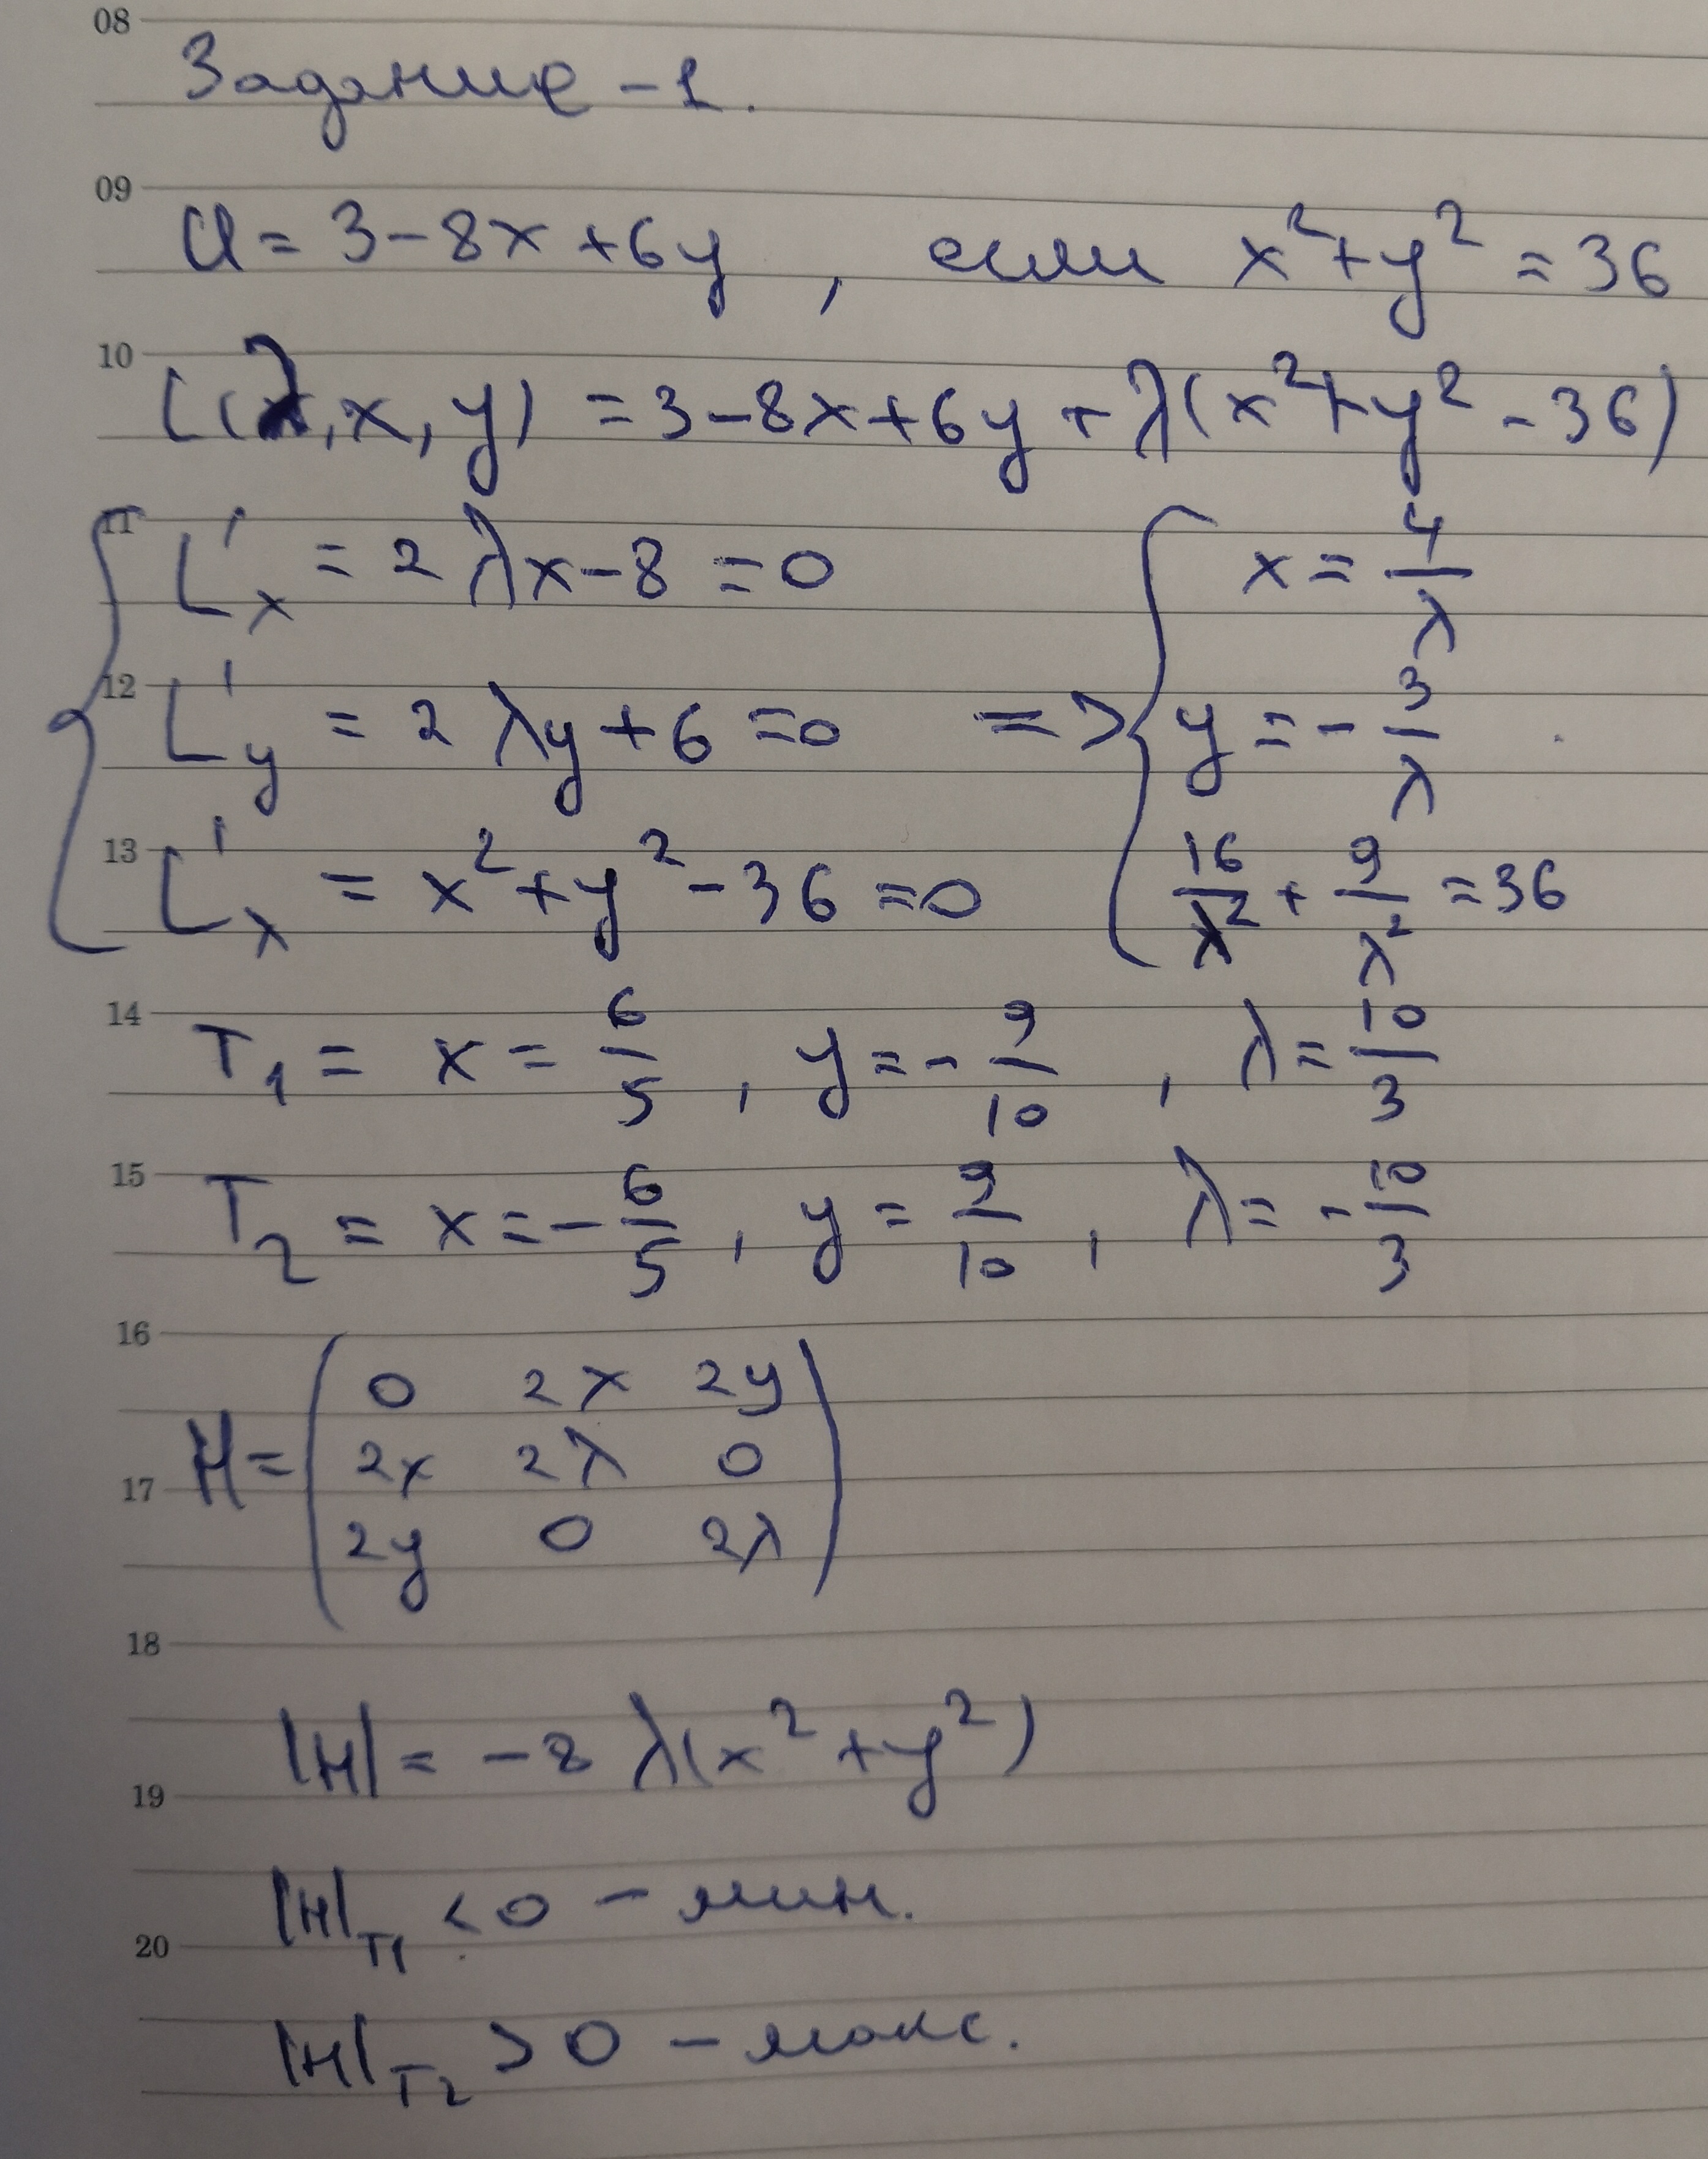 08
Задание - 1.
09
U = 3 - 8x + 6y , если x² + y² = 36
10
L(λ, x, y) = 3 - 8x + 6y + λ(x² + y² - 36)
11
L'x = 2λx - 8 = 0
x = 4/λ
12
L'y = 2λy + 6 = 0 => y = - 3/λ
13
L'λ = x² + y² - 36 = 0
16/λ² + 9/λ² = 36
14
T₁ = x = 6/5 , y = - 9/10 , λ = 10/3
15
T₂ = x = - 6/5 , y = 9/10 , λ = - 10/3
16
0 2x 2y
H = 2x 2λ 0
17
2y 0 2λ
18
|H| = -8λ(x² + y²)
19
|H|T1 < 0 - мин.
20
|H|T2 > 0 - макс.